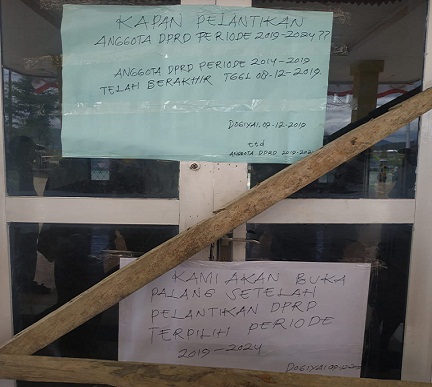 KAPAN PELANTIKAN
ANGGOTA DPRD PERIODE 2019-2024??
ANGGOTA DPRD PERIODE 2014-2019
TELAH BERAKHIR TGGL 08-12-2019.
DOGIYAI.09.12.2019
ttd
ANGGOTA DPRD 2019-2024
KAMI AKAN BUKA
PALANG SETELAH
PELANTIKAN DPRD
TERPILIH PERIODE
2019-2024
DOGIYAI.09-12-2019